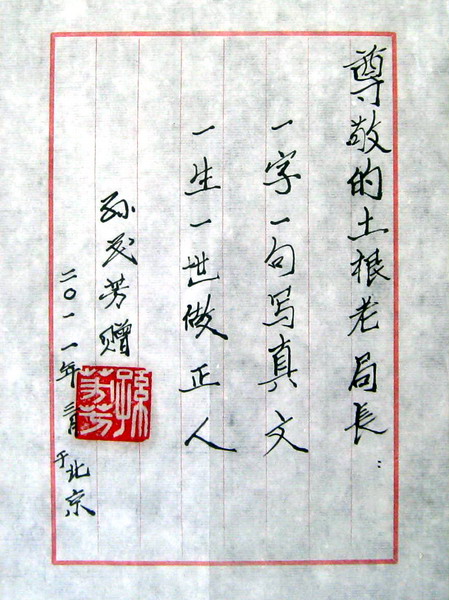 尊敬的土根老局長:
一字一句写真文
一生一世做正人
孙茂芳赠
二〇一一年三月于北京
孫茂芳